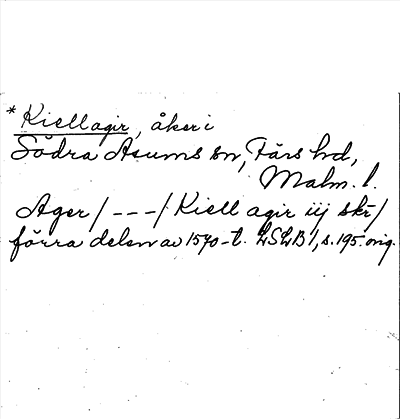 * Kiell agir, åker i
Södra Asums sn, Färs hd,
Malm. l.
Ager / - - - / Kiell agir iij skr /
förra delen av 1570-t. LSLB 1, s. 195. orig.